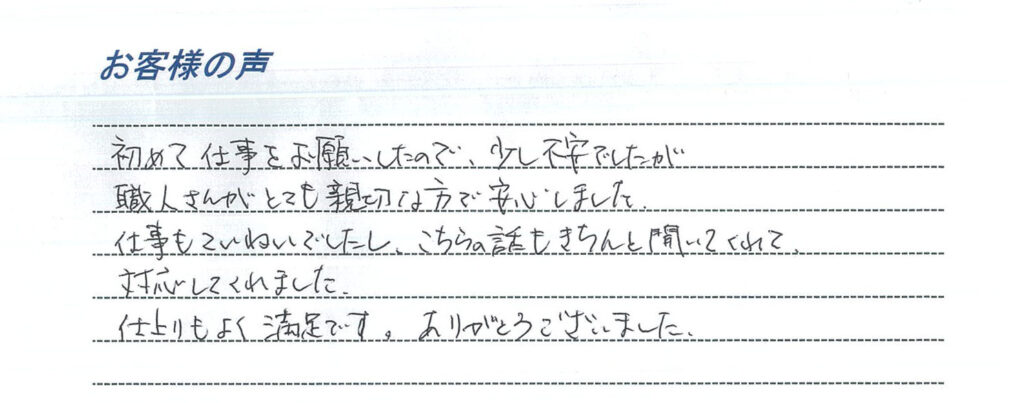 お客様の声
初めて仕事をお願いしたので、少し不安でしたが
職人さんがとても親切な方で安心しました.
仕事もていねいでしたし、こちらの話もきちんと聞いてくれて、
対応してくれました.
仕上りもよく満足です。ありがとうございました.